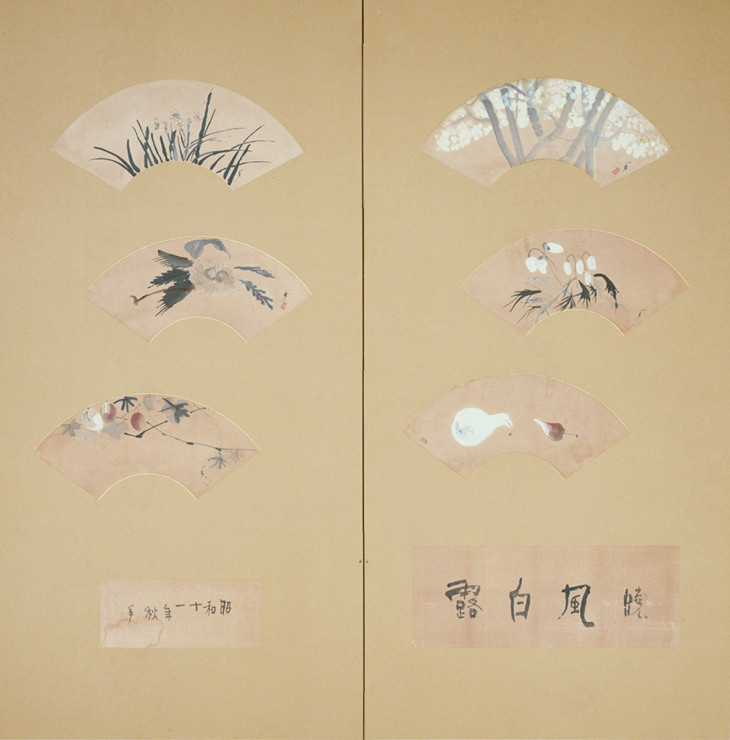 曉風白露
昭和十一年秋